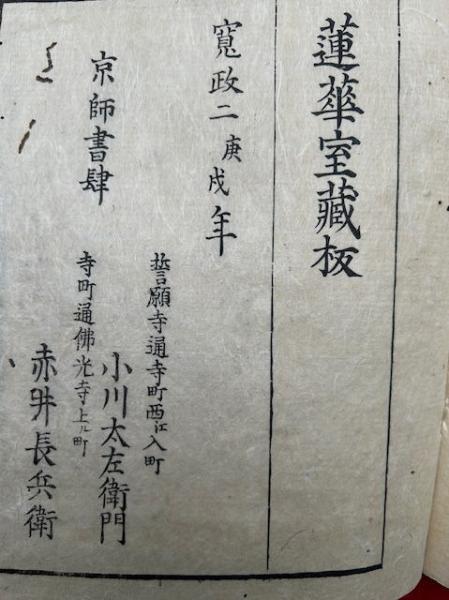 蓮華室藏板
寛政二庚戌年
京師書肆
誓願寺通寺町西江入町
小川太左衛門
寺町通佛光寺上ル町
赤井長兵衛